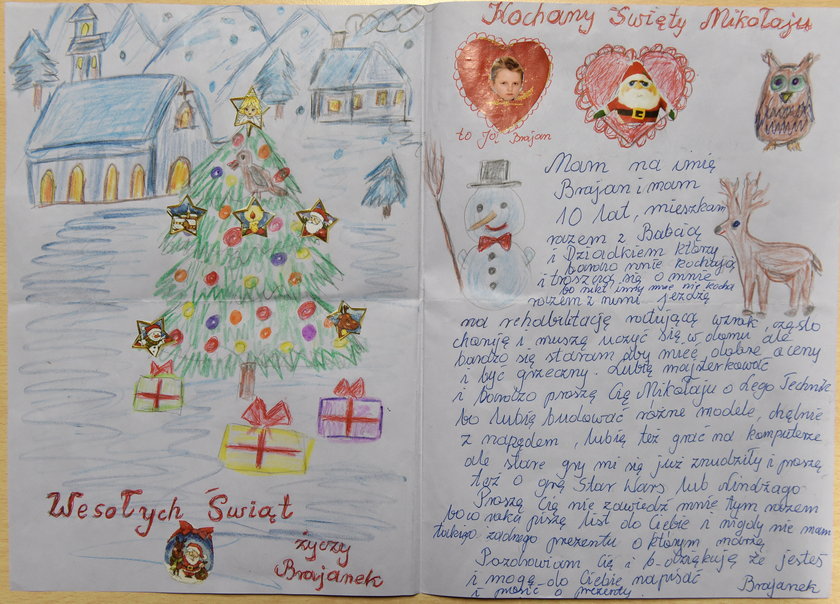 Wesołych Świąt
życzy
Brajanek
Kochany Święty Mikołaju
to Ja Brajan
Mam na imię
Brajan i mam
10 lat, mieszkam
razem z Babcią
i Dziadkiem którzy
bardzo mnie kochają
i troszczą się o mnie
bo nikt inny mnie nie kocha
razem z nimi jeżdżę
na rehabilitację ratującą wzrok, często
choruję i muszę uczyć się w domu ale
bardzo się staram aby mieć dobre oceny
i być grzeczny. Lubię majsterkować
i bardzo proszę Cię Mikołaju o Lego Technic
bo lubię budować różne modele, chętnie
z napędem, lubię też grać na komputerze
ale stare gry mi się już znudziły i proszę
też o grę Star Wars lub Nindżago
Proszę Cię nie zawiedź mnie tym razem
bo co roku piszę list do Ciebie i nigdy nie mam
takiego żadnego prezentu o którym marzę
Pozdrawiam Cię i b. dziękuję że jesteś
i mogę do Ciebie napisać Brajanek
i prosić o prezenty.